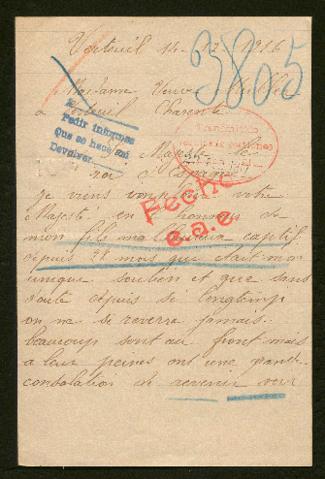 Verteuil 14-12-1916
3805
Madame Veuve
a Verteuil Charente
Pedir informes
Que se hace así
Devolver
Sa Majesté le
roi d'Espagne
Je viens votre
Majesté en de
Fecho
e.a.e
mon fils malheureux captif
depuis 28 mois qui était mon
unique soutien et que sans
doute depuis si longtemps
on ne se reverra jamais.
beaucoup sont au front mais
a leur peines ont une grande
consolation de revenir voir